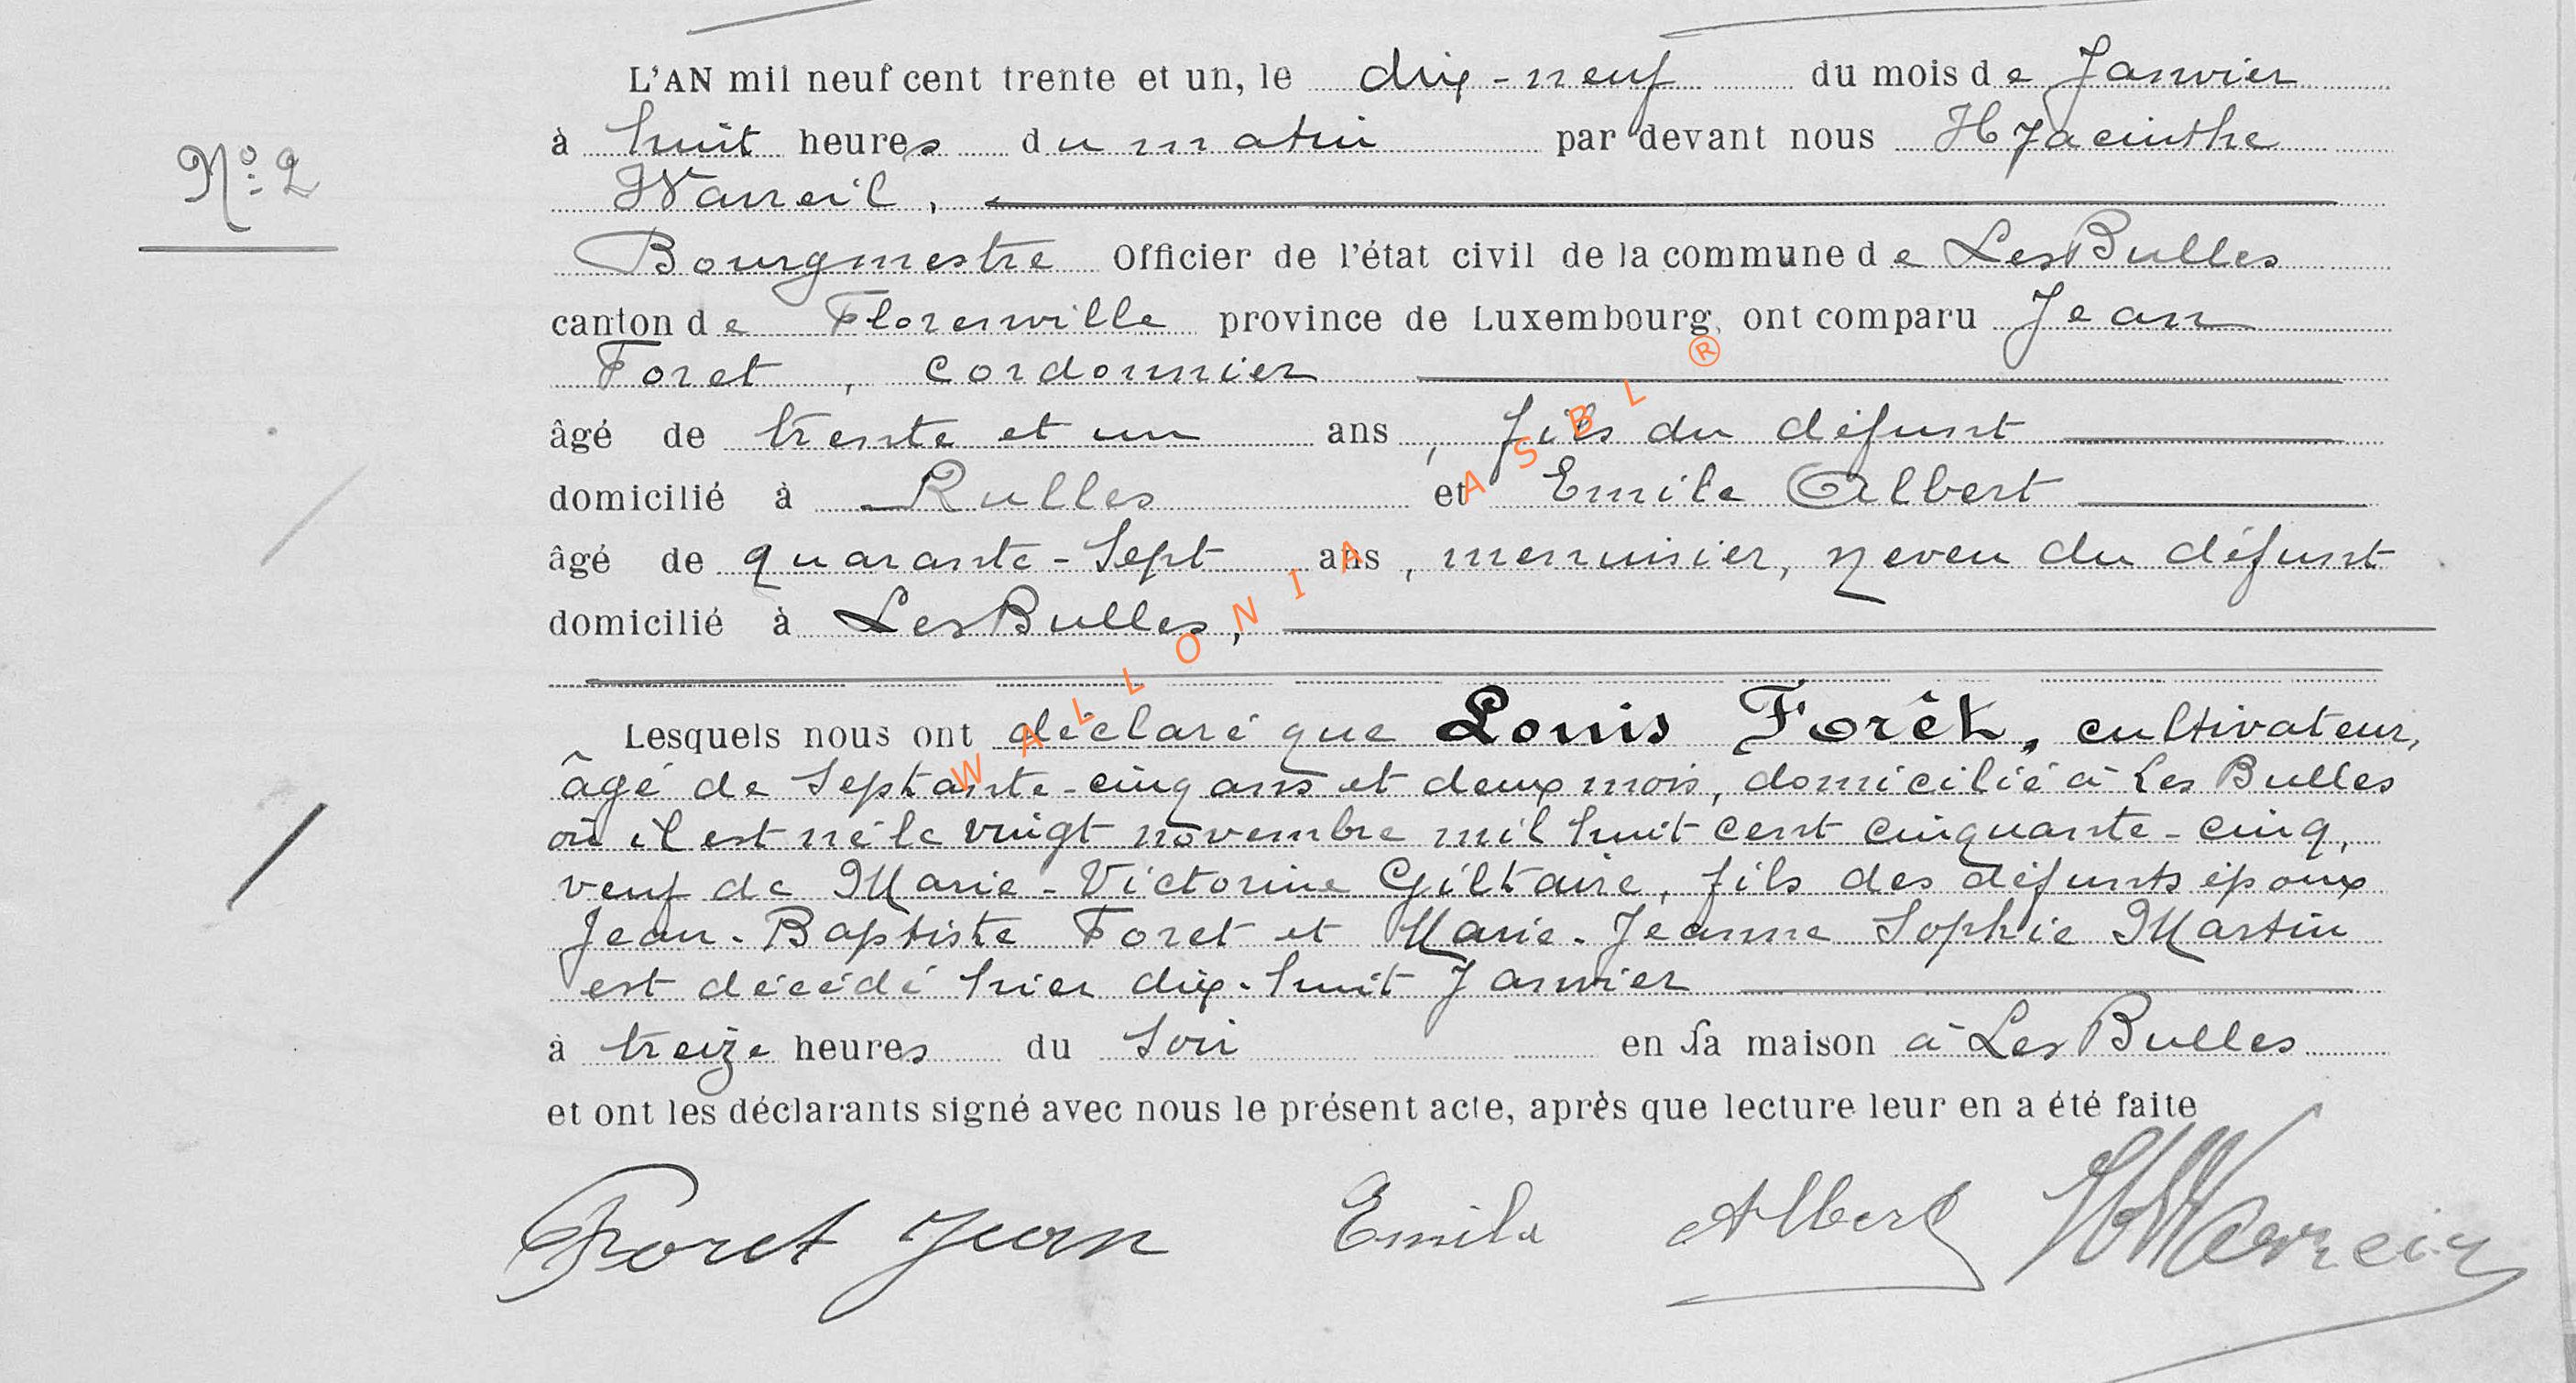 L'AN mil neuf cent trente et un, le dix-neuf du mois de Janvier
N° 2
à huit heures du matin par devant nous Hyacinthe
Warreil,
Bourgmestre Officier de l'état civil de la commune de Les Bulles
canton de Florenville province de Luxembourg, ont comparu Jean
Foret, cordonnier
âgé de trente et un ans, fils du défunt
domicilié à Rulles et Emile Albert
âgé de quarante-sept ans, menuisier, neveu du défunt
domicilié à Les Bulles,
WALLONIA ASBL ®
Lesquels nous ont déclaré que Louis Forêt, cultivateur,
âgé de septante-cinq ans et deux mois, domicilié à Les Bulles
où il est né le vingt novembre mil huit cent cinquante-cinq,
veuf de Marie-Victorine Giltaire, fils des défunts époux
Jean-Baptiste Foret et Marie-Jeanne Sophie Martin
est décédé hier dix-huit Janvier
à treize heures du soir en sa maison à Les Bulles
et ont les déclarants signé avec nous le présent acte, après que lecture leur en a été faite
Foret Jean Emile Albert